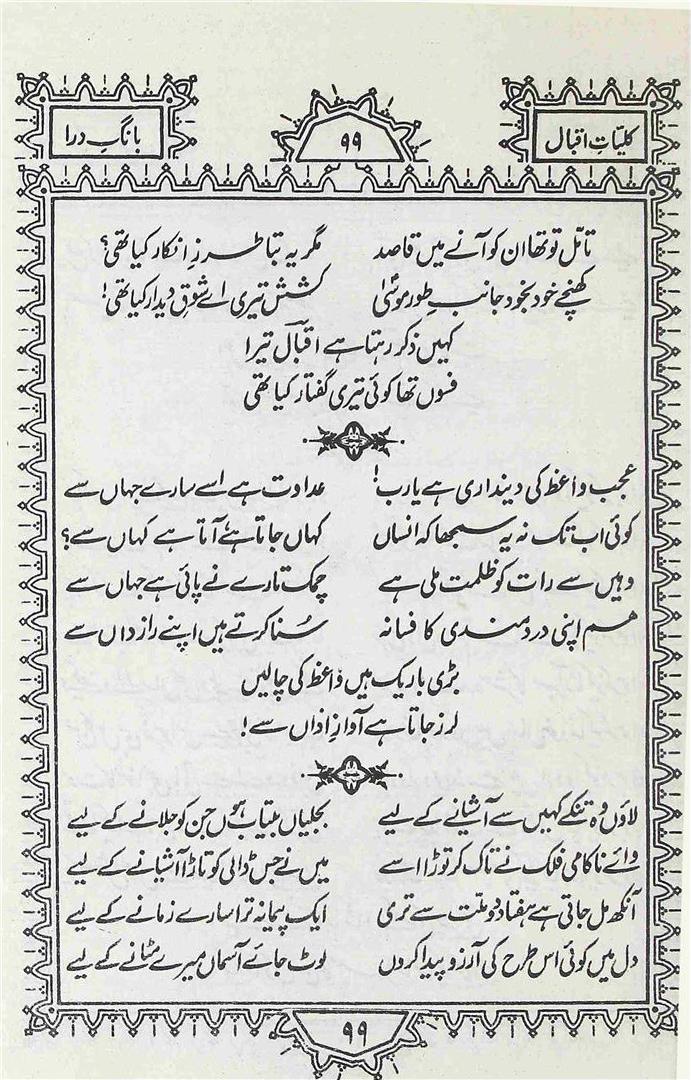 کلیاتِ اقبال ۹۹ بانگِ درا
تامّل تو تھا ان کو آنے میں قاصد مگر یہ بتا طرزِ انکار کیا تھی؟
کھنچے خود بخود جانبِ طور موسیٰؑ کشش تیری اے شوقِ دیدار کیا تھی!
کہیں ذکر رہتا ہے اقبالؔ تیرا
فسوں تھا کوئی تیری گفتار کیا تھی
عجب واعظ کی دینداری ہے یارب! عداوت ہے اسے سارے جہاں سے
کوئی اب تک نہ یہ سمجھا کہ انساں کہاں جاتا ہے، آتا ہے کہاں سے؟
وہیں سے رات کو ظلمت ملی ہے چمک تارے نے پائی ہے جہاں سے
ہم اپنی دردمندی کا فسانہ سُنا کرتے ہیں اپنے رازداں سے
بڑی باریک ہیں واعظ کی چالیں
لرز جاتا ہے آوازِ اذاں سے!
لاؤں وہ تنکے کہیں سے آشیانے کے لیے بجلیاں بیتاب ہوں جن کو جلانے کے لیے
وائے ناکامی فلک نے تاک کر توڑا اسے میں نے جس ڈالی کو تاڑا آشیانے کے لیے
آنکھ مل جاتی ہے ہفتاد و دو ملّت سے تری ایک پیمانہ ترا سارے زمانے کے لیے
دل میں کوئی اس طرح کی آرزو پیدا کروں لوٹ جائے آسماں میرے مٹانے کے لیے
۹۹